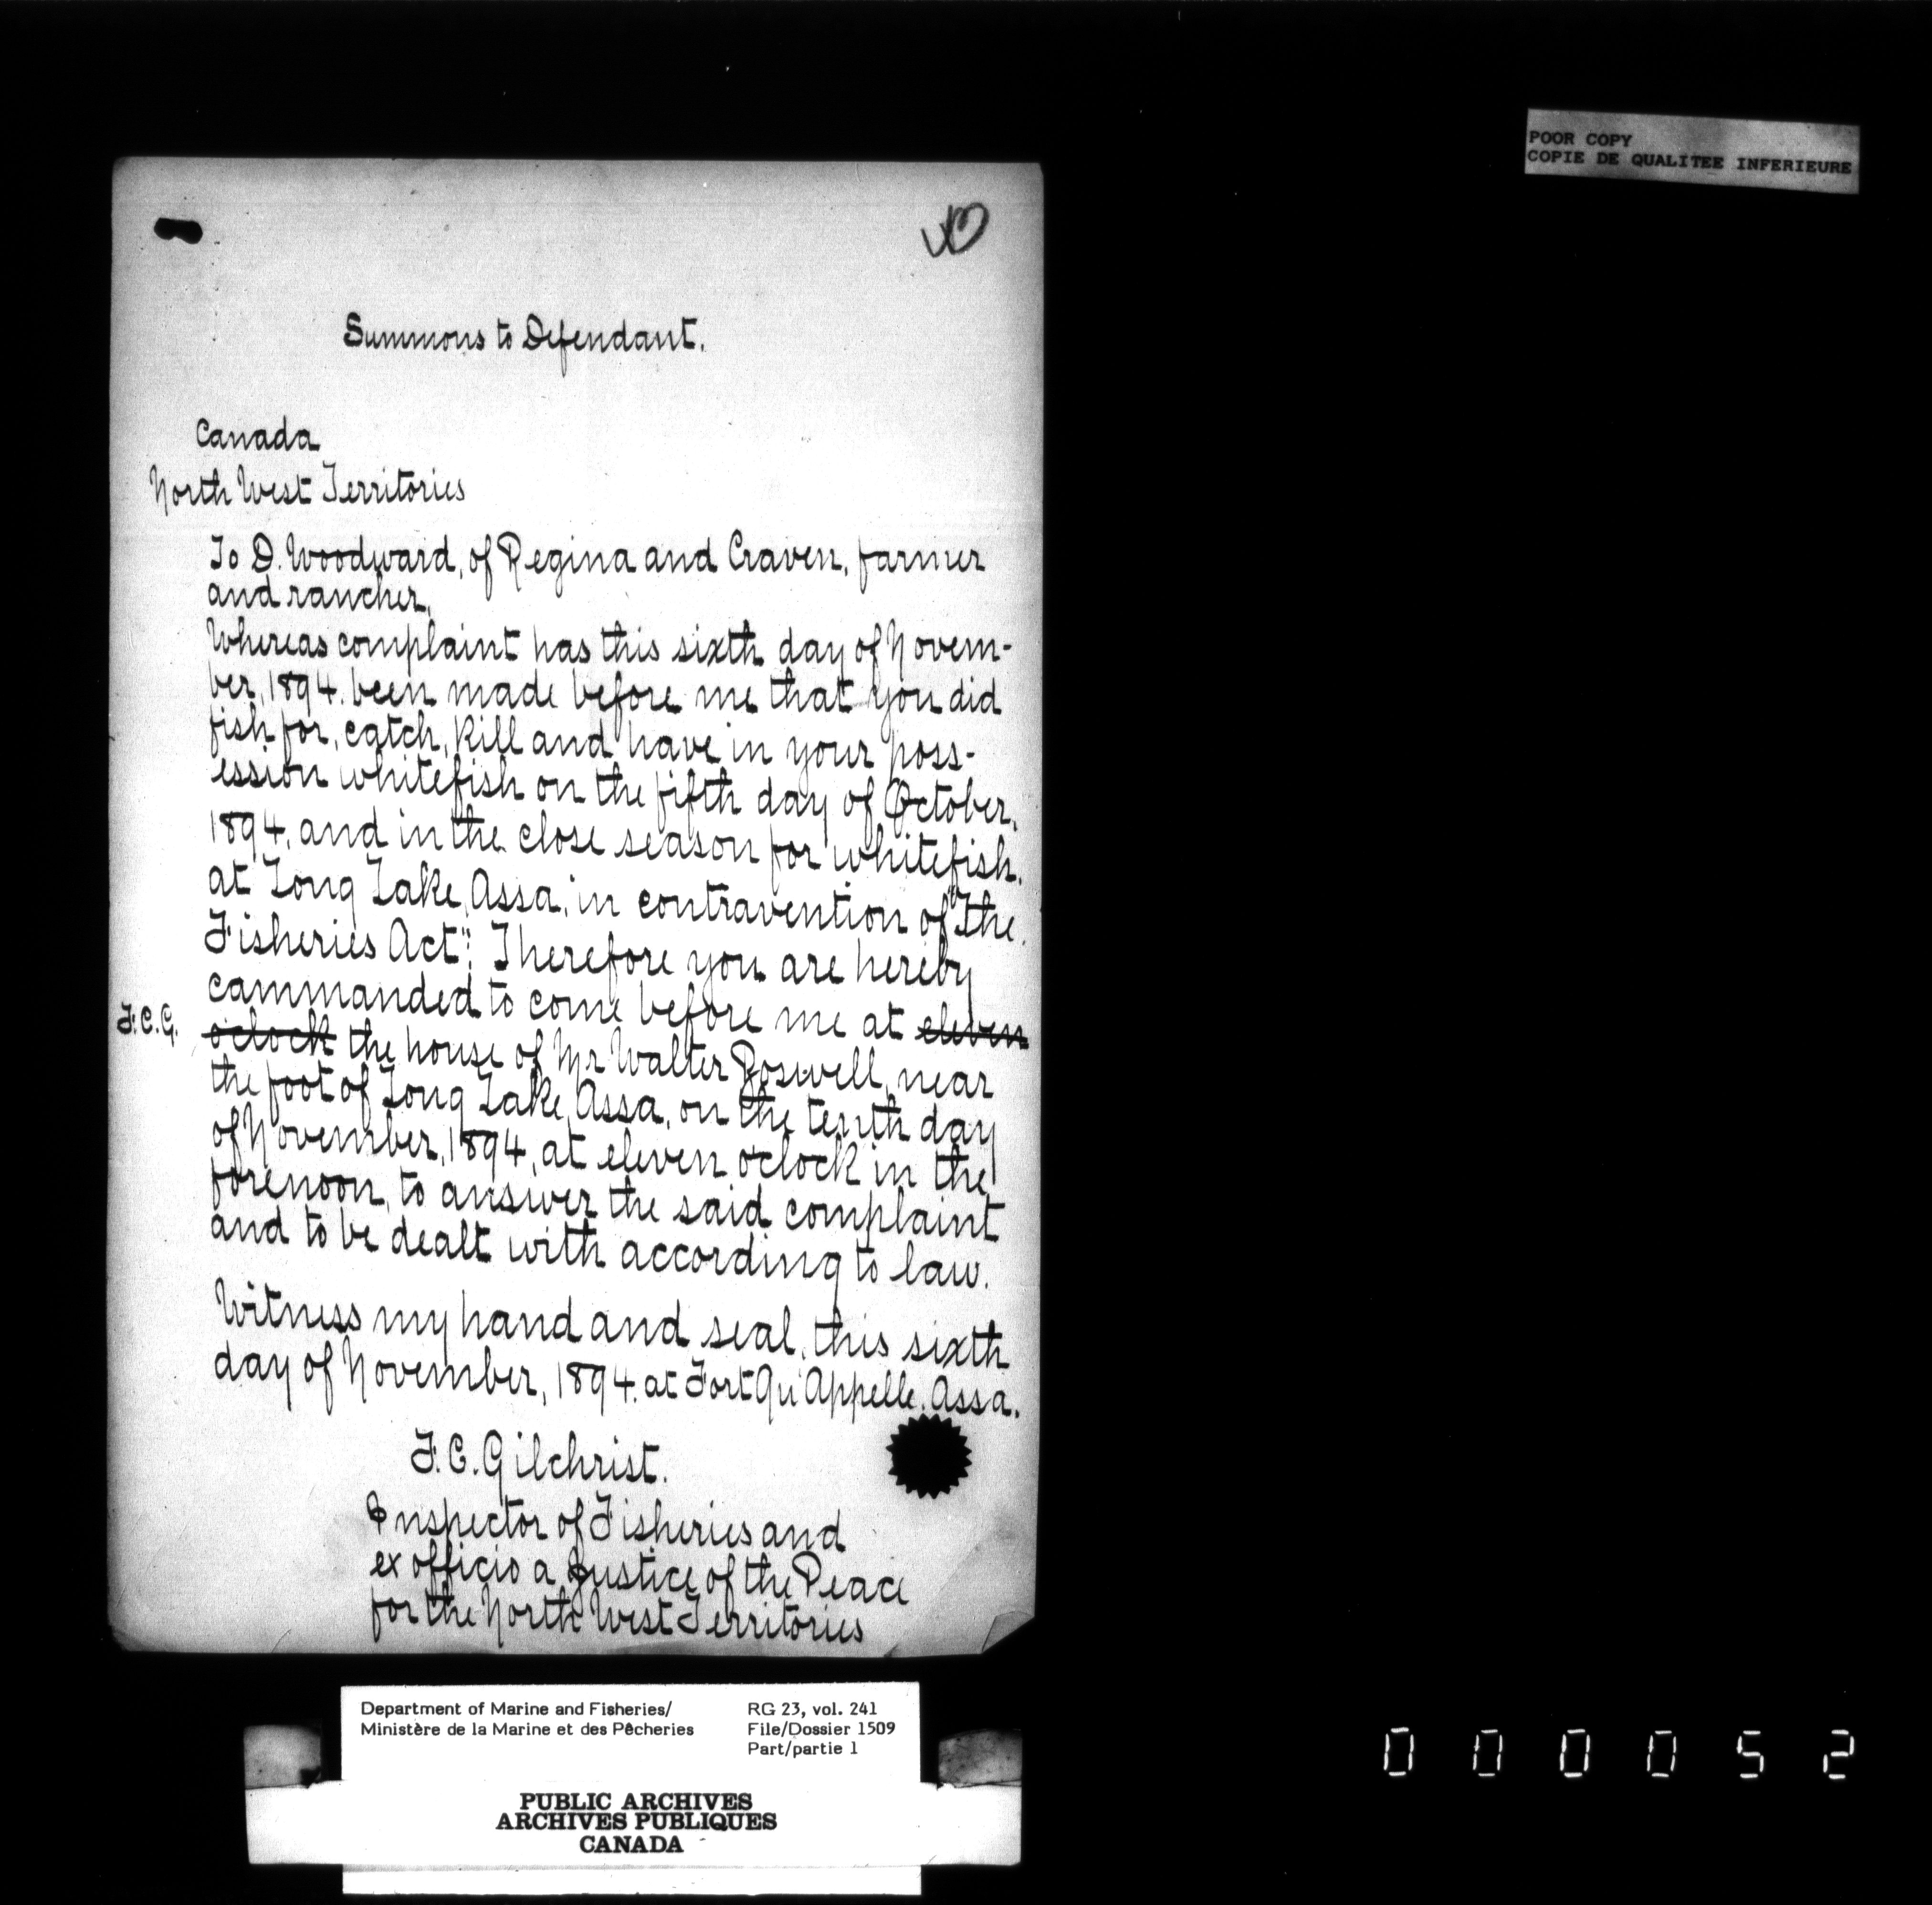 POOR COPY
COPIE DE QUALITEE INFERIEURE
Summons to Defendant.
Canada
North West Territories
To D. Woodward, of Regina and Craven, farmer
and rancher,
Whereas complaint has this sixth day of Novem-
ber, 1894. been made before me that you did
fish for, catch, kill and have in your poss-
ession whitefish on the fifth day of October,
1894, and in the close season for whitefish,
at Long Lake, Assa, in contravention of "The
Fisheries Act": Therefore you are hereby
commanded to come before me at eleven
F.C.G. o'clock the house of Mr Walter Boswell, near
the foot of Long Lake, Assa, on the tenth day
of November, 1894, at eleven o'clock in the
forenoon, to answer the said complaint
and to be dealt with according to law.
Witness my hand and seal, this sixth
day of November, 1894. at Fort Qu'Appelle. Assa.
F. C. Gilchrist.
Inspector of Fisheries and
ex officio a Justice of the Peace
for the North West Territories
Department of Marine and Fisheries/ RG 23, vol. 241
Ministère de la Marine et des Pêcheries File/Dossier 1509
Part/partie 1
PUBLIC ARCHIVES
ARCHIVES PUBLIQUES
CANADA
000052